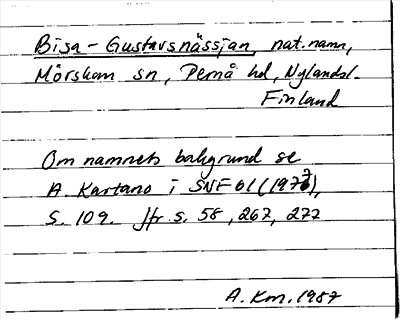 Bisa - Gustavsnässjan, nat.namn,
Mörskom sn, Pernå hd, Nylandsl.
Finland
Om namnets bakgrund se
A. Kartano i SNF 61 (1973),
S. 109. Jfr s. 58, 267, 272
A. Km. 1987